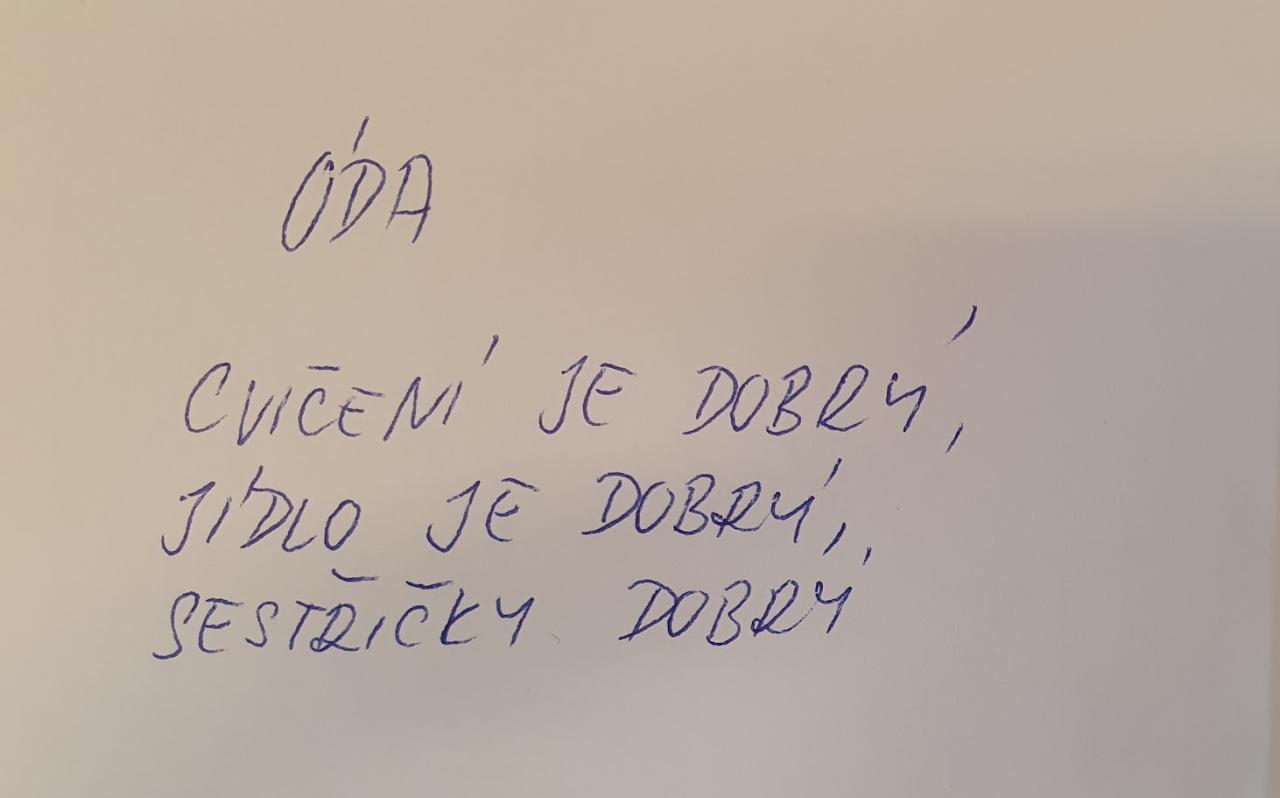 ÓDA
CVIČENÍ JE DOBRÝ,
JÍDLO JE DOBRÝ,
SESTŘIČKY DOBRÝ